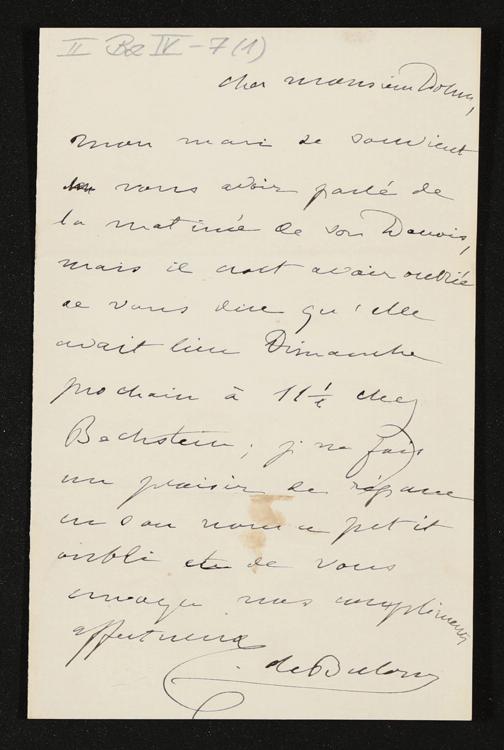 II Be IV - 7 (1)
cher monsieur Dohm,
mon mari se souvient
vous avoir parlé de
la matinée de
mais il croit avoir oublié
de vous dire qu'elle
avait lieu Dimanche
prochain à 11 ½ chez
Bechstein; je me fais
un plaisir de réparer
en son nom ce petit
oubli et de vous
envoyer nos complimens
affectueux
C. de Bulow